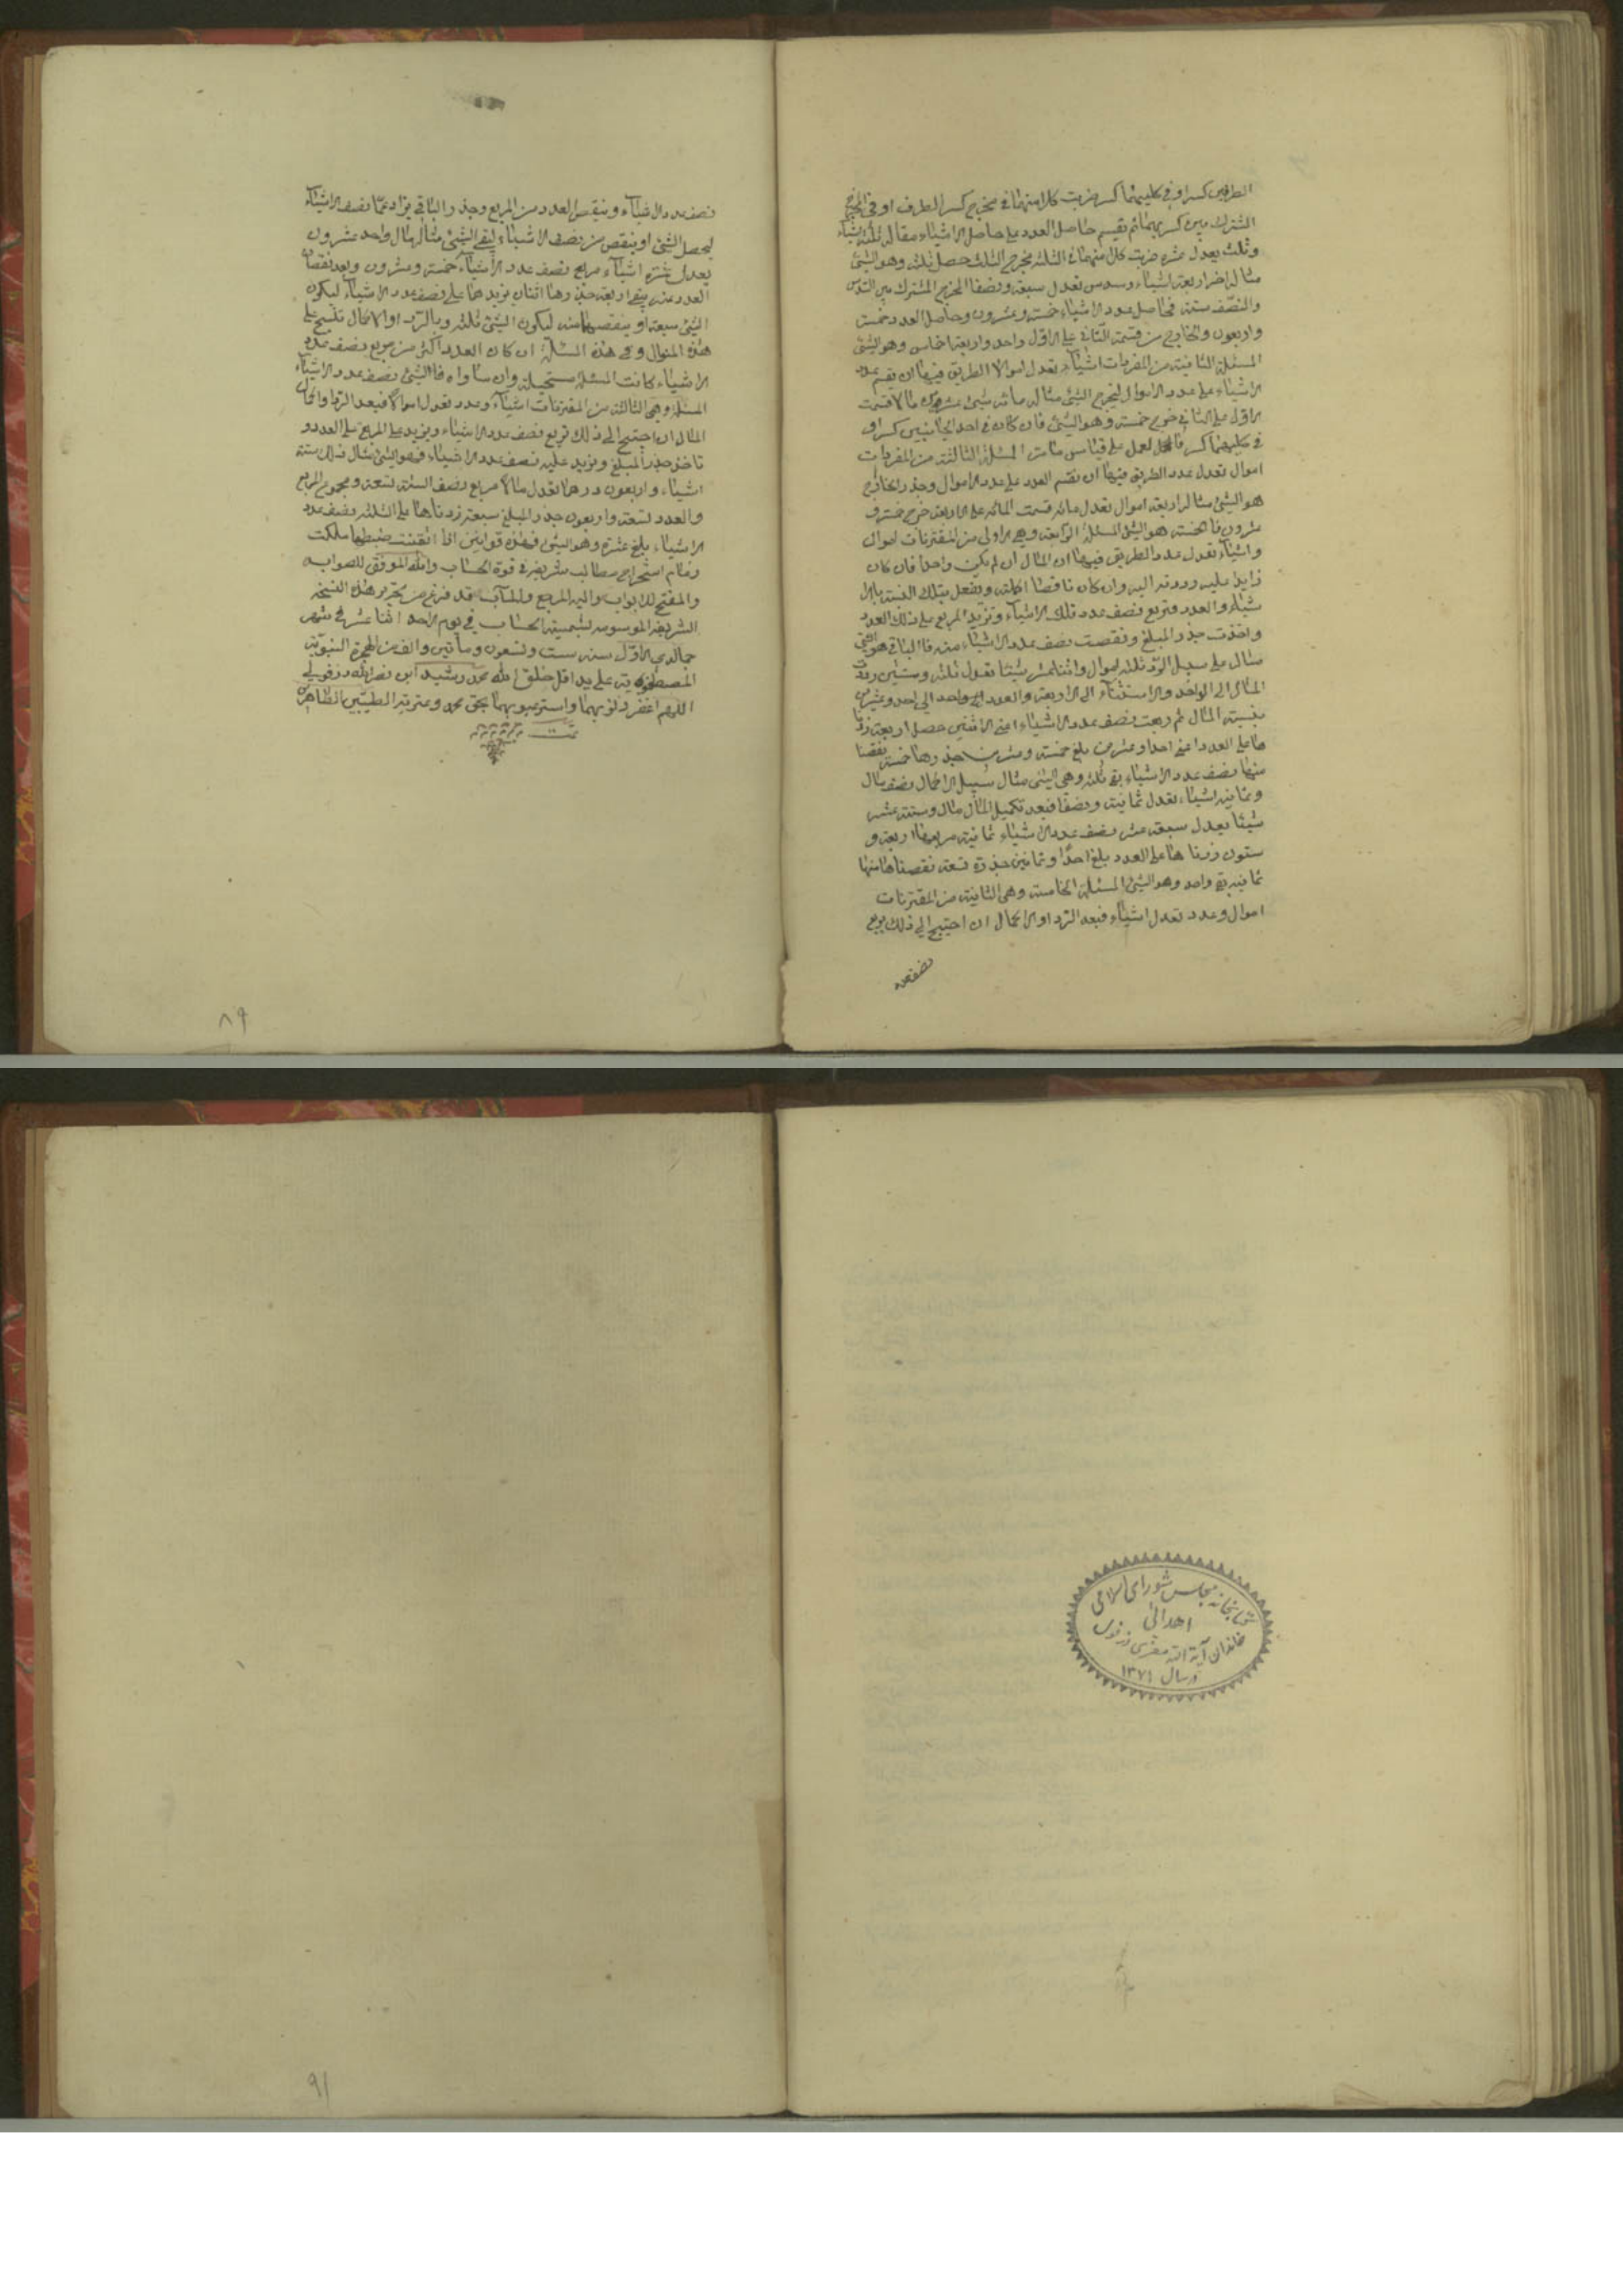 الطرفين كسر او في كليهما كسر ضربت كلا منهما في مخرج كسر الطرف او في المخرج
المشترك بين كسريهما ثم تقسم حاصل العدد على حاصل الاشياء مثاله ثلثة اشياء
وثلث يعدل عشرة ضربت كلا منهما في الثلثة مخرج الثلث حصل ثلثة وهو الشئ
مثال اخر اربعة اشياء وسدس تعدل سبعة ونصفا المخرج المشترك بين السدس
والنصف ستة فحاصل عدد الاشياء خمسة وعشرون وحاصل العدد خمسة
واربعون والخارج من قسمة الثاني على الاول واحد واربعة اخماس وهو الشئ
المسئلة الثانية من المفردات اشياء تعدل اموالا الطريق فيها ان تقسم عدد
الاشياء على عدد الاموال ليخرج الشئ مثاله مائة شئ عشرون مالا قسمت
الاول على الثاني خرج خمسة وهو الشئ فان كان في احد الجانبين كسر او
في كليهما كسر فالعمل على قياس ما مر المسئلة الثالثة من المفردات
اموال تعدل عدد الطريق فيها ان تقسم العدد على عدد الاموال وجذر الخارج
هو الشئ مثاله اربعة اموال تعدل مائة قسمت المائة على الاربعة خرج خمسة و
عشرون فالخمسة هو الشئ المسئلة الرابعة وهي الاولى من المقترنات اموال
واشياء تعدل عدد الطريق فيها ان المال ان لم يكن واحدا فان كان
زايدا عليه رددته اليه وان كان ناقصا اكملته وتفعل بتلك النسبة بالا
شياء والعدد وتربع نصف عدد تلك الاشياء وتزيد المربع على ذلك العدد
واخذت جذر المبلغ ونقصت نصف عدد الاشياء منه فالباقي هو الشئ
مثال على سبيل الرد ثلثة اموال واثنا عشر شيئا تعدل ثلثة وستين رددت
المال الى الواحد والاشياء الى الاربعة والعدد الى واحد وعشرين
بنسبة المال ثم ربعت نصف عدد الاشياء اعني الاثنين حصل اربعة زدنا
ها على العدد اعني احدا وعشرين بلغ خمسة وعشرين جذرها خمسة نقصنا
منها نصف عدد الاشياء بقي ثلثة وهي الشئ مثال سبيل الاكمال نصف مال
وثمانية اشياء تعدل ثمانية ونصفا فبعد تكميل المال مال وستة عشر
شيئا يعدل سبعة عشر نصف عدد الاشياء ثمانية مربعها اربعة و
ستون زدناها على العدد بلغ احدا وثمانين جذره تسعة نقصنا منها
ثمانية بقي واحد وهو الشئ المسئلة الخامسة وهي الثانية من المقترنات
اموال وعدد تعدل اشياء فبعد الرد او الاكمال ان احتيج الى ذلك يربع
نصف عدد
نصف عدد الاشياء وينقص العدد من المربع وجذر الباقي يزاد على نصف الاشياء
ليحصل الشئ او ينقص من نصف الاشياء ليبقى الشئ مثاله مال واحد عشرون
يعدل عشرة اشياء مربع نصف عدد الاشياء خمسة وعشرون وبعد نقصان
العدد عنه يبقى اربعة جذرها اثنان نزيدها على نصف عدد الاشياء ليكون
الشئ سبعة او ينقصها منه ليكون الشئ ثلثة وبالرد او الاكمال تنسج على
هذه المنوال وفي هذه المسئلة ان كان العدد اكثر من مربع نصف عدد
الاشياء كانت المسئلة مستحيلة وان ساواه فالشئ نصف عدد الاشياء
المسئلة وهي الثالثة من المقترنات اشياء وعدد تعدل اموالا فبعد الرد او اكمال
المال ان احتيج الى ذلك تربع نصف عدد الاشياء وتزيد على المربع على العدد و
تاخذ جذر المبلغ وتزيد عليه نصف عدد الاشياء فهو الشئ مثال ذلك ستة
اشياء واربعون درهما تعدل مالا مربع نصف الستة تسعة ومجموع المربع
والعدد تسعة واربعون جذر المبلغ سبعة زدناها على الثلثة نصف عدد
الاشياء بلغ عشرة وهو الشئ فهذه قوانين اذا اتقنت ضبطها ملكت
زمام استخراج مطالب شريفة في قوة الحساب والله الموفق للصواب
والمفتح للابواب واليه المرجع والمآب قد فرغ من تحرير هذه النسخة
الشريفة الموسومة لشمسية الحساب في يوم الاحد اثنا عشر في شهر
جمادي الاول سنه ست وتسعون ومأتين والف من الهجرة النبوية
المصطفوية على يد اقل خلق الله محمد رشيد ابن نصر الله دزفولي
اللهم اغفر ذنوبهما واستر عيوبهما بحق محمد وعترته الطيبين الطاهرين
تمت
٨٩
كتابخانه مجلس شورای اسلامی
اهدائی
خاندان آیة الله معزی دزفولی
در سال ۱۳۷۱
٩١